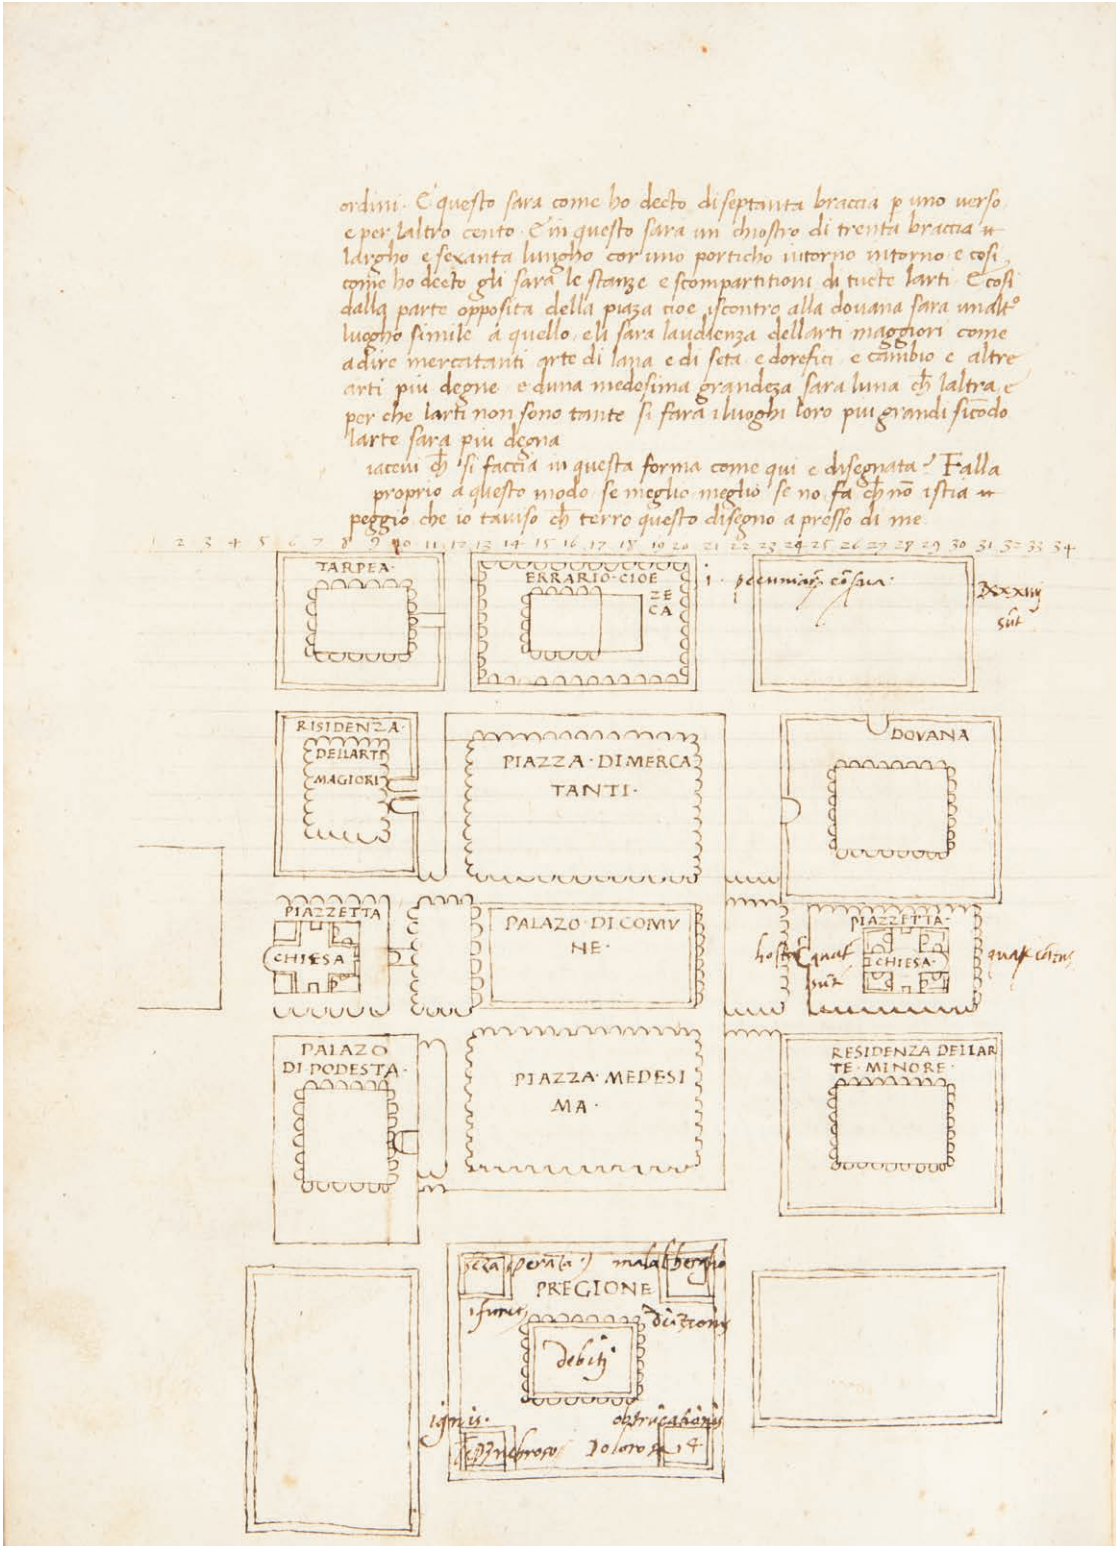 ordini · E questo sara come ho decto di septanta braccia p uno verso
e per laltro cento · E in questo sara un chiostro di trenta braccia
largho e sexanta lungho con uno porticho intorno intorno e cosi
come ho decto gli sara le stanze e scompartitioni di tucte larti · E cosi
dalla parte opposita della piaza cioe iscontro alla dovana sara unaltº
luogho simile a quello, e li sara laudienza dellarti maggiori come
adire mercatanti arte di lana e di seta e dorefici e cambio e altre
arti piu degne e duna medesima grandeza sara luna ch laltra, e
per che larti non sono tante si fara i luoghi loro piu grandi sicōdo
larte sara piu degna
iacevi ch si faccia in questa forma come qui e disegnata? Falla
proprio a questo modo se meglio meglio se no fa ch nō istia
peggio che io taviso ch terro questo disegno apresso di me
1 2 3 4 5 6 7 8 9 10 11 12 13 14 15 16 17 18 19 20 21 22 23 24 25 26 27 28 29 30 31 32 33 34
TARPEA ·
ERRARIO · CIOE
ZE
CA
RISIDENZA ·
DELLARTI
MAGIORI
PIAZZA · DI MERCA
TANTI ·
DOVANA
PIAZZETTA
CHIESA
PALAZO · DI COMV
NE ·
PIAZZETTA ·
CHIESA ·
PALAZO
DI PODESTA ·
PIAZZA · MEDESI
MA ·
RESIDENZA DELLAR
TE · MINORE ·
PREGIONE
debiti
ignis ·